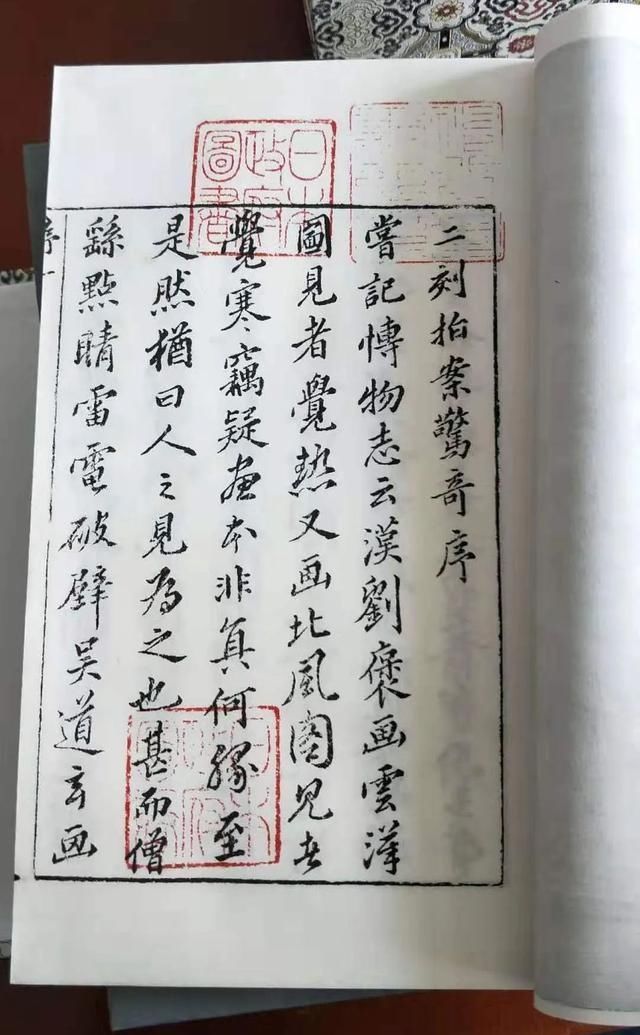 日本政府圖書
二刻拍案驚奇序
嘗記博物志云漢劉褒画雲漢
圖見者覺熱又画北風圖見者
覺寒竊疑畫本非真何緣至
是然猶曰人之見為之也甚而僧
繇點睛雷電破壁吳道玄画
序一